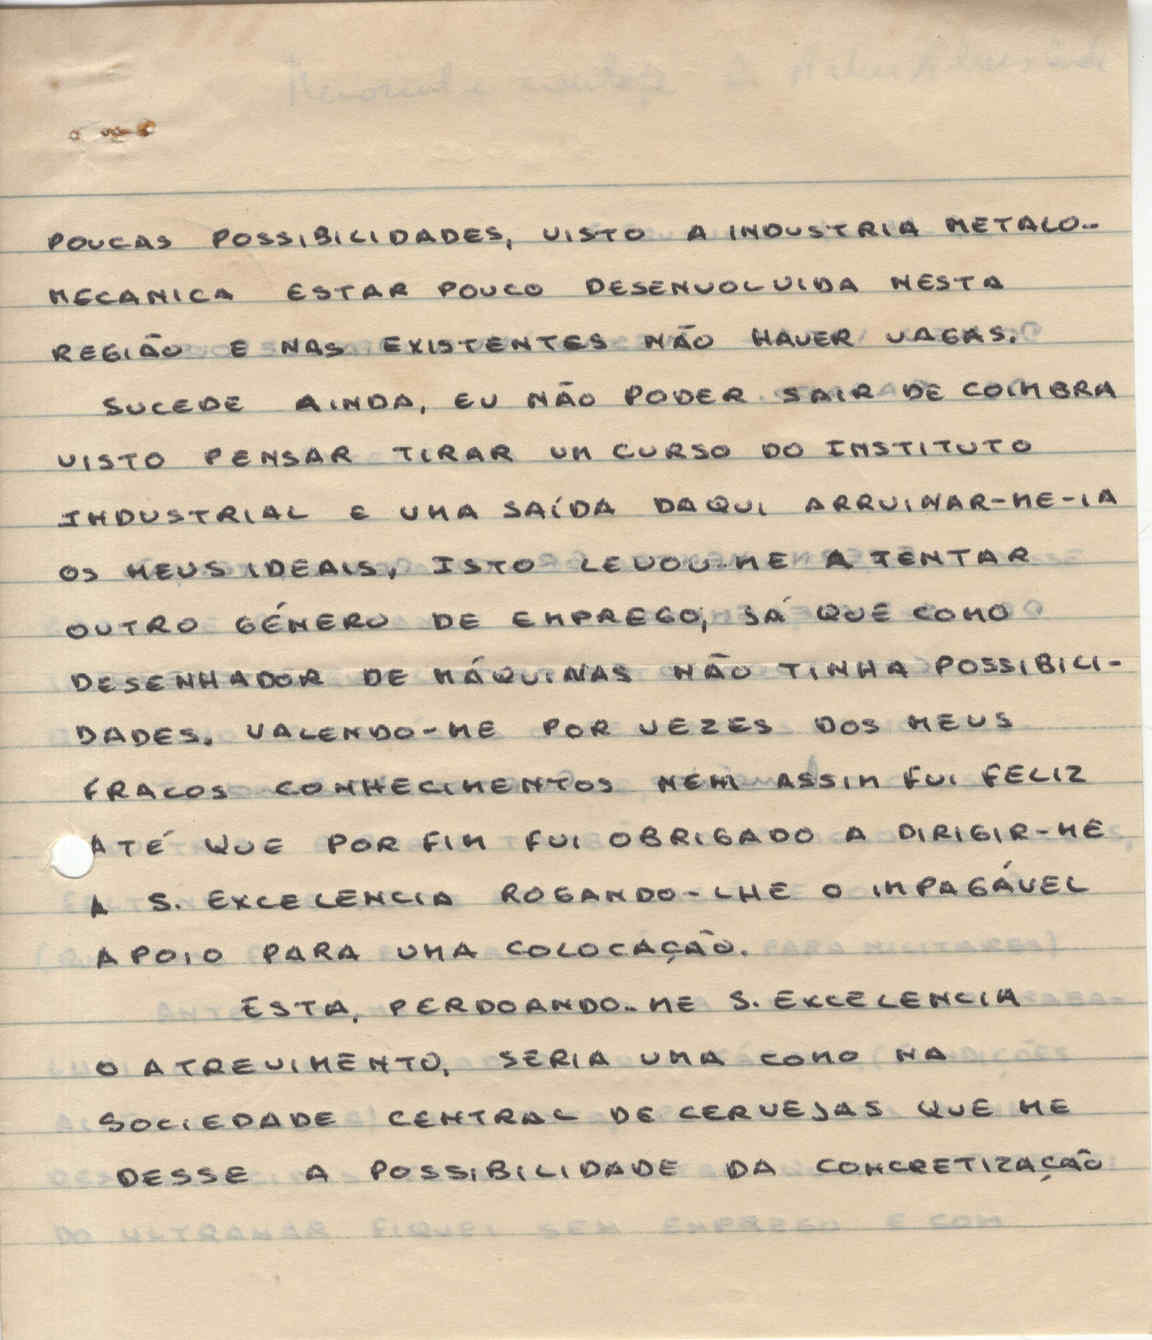 POUCAS POSSIBILIDADES, VISTO A INDUSTRIA METALO-
MECANICA ESTAR POUCO DESENVOLVIDA NESTA
REGIÃO E NAS EXISTENTES NÃO HAVER VAGAS.
SUCEDE AINDA, EU NÃO PODER SAIR DE COIMBRA
VISTO PENSAR TIRAR UM CURSO DO INSTITUTO
INDUSTRIAL E UMA SAÍDA DAQUI ARRUINAR-ME-IA
OS MEUS IDEAIS, ISTO LEVOU-ME A TENTAR
OUTRO GÉNERO DE EMPREGO, JÁ QUE COMO
DESENHADOR DE MÁQUINAS NÃO TINHA POSSIBILI-
DADES. VALENDO-ME POR VEZES DOS MEUS
FRACOS CONHECIMENTOS NEM ASSIM FUI FELIZ
ATÉ QUE POR FIM FUI OBRIGADO A DIRIGIR-ME
A S. EXCELENCIA ROGANDO-LHE O IMPAGÁVEL
APOIO PARA UMA COLOCAÇÃO.
ESTA, PERDOANDO-ME S. EXCELENCIA
O ATREVIMENTO, SERIA UMA COMO NA
SOCIEDADE CENTRAL DE CERVEJAS QUE ME
DESSE A POSSIBILIDADE DA CONCRETIZAÇÃO